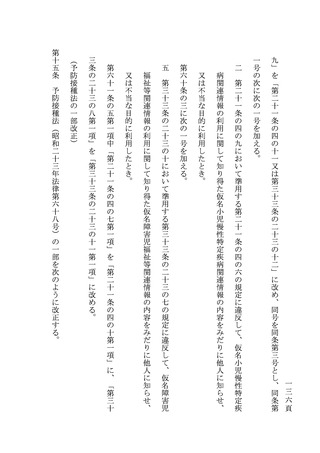 一三六頁
九」を「第二十一条の四の十一又は第三十三条の二十三の十二」に改め、同号を同条第三号とし、同条第
一号の次に次の一号を加える。
二　第二十一条の四の九において準用する第二十一条の四の六の規定に違反して、仮名小児慢性特定疾
病関連情報の利用に関して知り得た仮名小児慢性特定疾病関連情報の内容をみだりに他人に知らせ、
又は不当な目的に利用したとき。
第六十条の三に次の一号を加える。
五　第三十三条の二十三の十において準用する第三十三条の二十三の七の規定に違反して、仮名障害児
福祉等関連情報の利用に関して知り得た仮名障害児福祉等関連情報の内容をみだりに他人に知らせ、
又は不当な目的に利用したとき。
第六十一条の五第一項中「第二十一条の四の七第一項」を「第二十一条の四の十第一項」に、「第三十
三条の二十三の八第一項」を「第三十三条の二十三の十一第一項」に改める。
（予防接種法の一部改正）
第十五条　予防接種法（昭和二十三年法律第六十八号）の一部を次のように改正する。